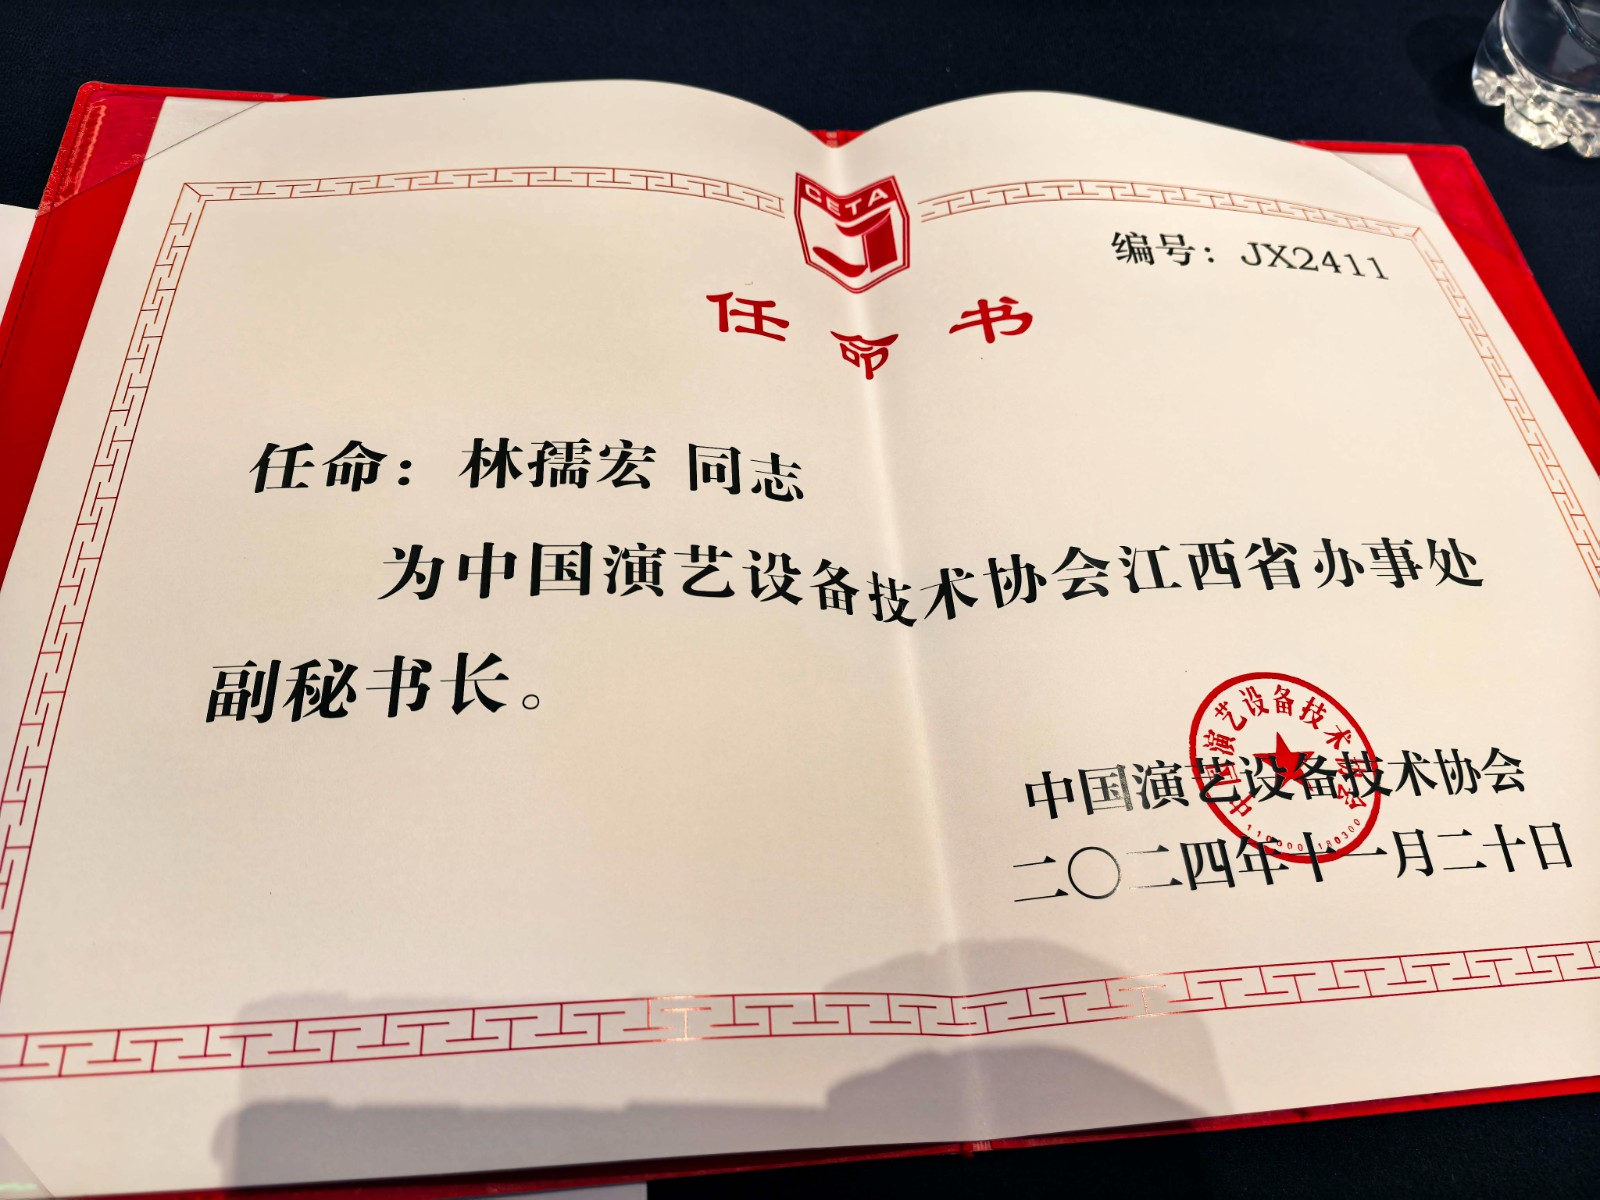 CETA
编号：JX2411
任命书
任命：林孺宏 同志
为中国演艺设备技术协会江西省办事处
副秘书长。
中国演艺设备技术协会
中国演艺设备技术协会
二〇二四年十一月二十日